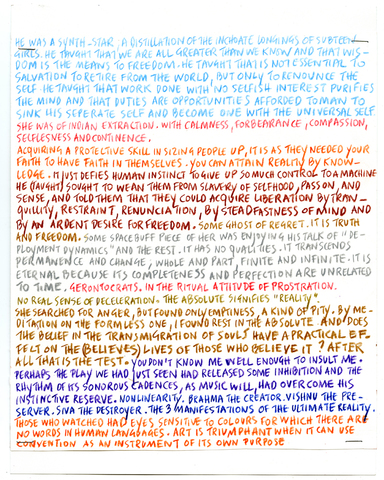 HE WAS A SYNTH-STAR, A DISTILLATION OF THE INCHOATE LONGINGS OF SUBTEEN
GIRLS. HE TAUGHT THAT WE ARE ALL GREATER THAN WE KNOW AND THAT WIS-
DOM IS THE MEANS TO FREEDOM. HE TAUGHT THAT IS NOT ESSENTIAL TO
SALVATION TO RETIRE FROM THE WORLD, BUT ONLY TO RENOUNCE THE
SELF. HE TAUGHT THAT WORK DONE WITH NO SELFISH INTEREST PURIFIES
THE MIND AND THAT DUTIES ARE OPPORTUNITIES AFFORDED TO MAN TO
SINK HIS SEPERATE SELF AND BECOME ONE WITH THE UNIVERSAL SELF.
SHE WAS OF INDIAN EXTRACTION. WITH CALMNESS, FORBEARANCE, COMPASSION,
SELFLESSNESS AND CONTINENCE.
ACQUIRING A PROTECTIVE SKILL IN SIZING PEOPLE UP, IT IS AS THEY NEEDED YOUR
FAITH TO HAVE FAITH IN THEMSELVES. YOU CAN ATTAIN REALITY BY KNOW-
LEDGE. IT JUST DEFIES HUMAN INSTINCT TO GIVE UP SO MUCH CONTROL TO A MACHINE
HE (TAUGHT) SOUGHT TO WEAN THEM FROM SLAVERY OF SELFHOOD, PASSION, AND
SENSE, AND TOLD THEM THAT THEY COULD ACQUIRE LIBERATION BY TRAN-
QUILLITY, RESTRAINT, RENUNCIATION, BY STEADFASTNESS OF MIND AND
BY AN ARDENT DESIRE FOR FREEDOM. SOME GHOST OF REGRET. IT IS TRUTH
AND FREEDOM. SOME SPACEBUFF PIECE OF HER WAS ENJOYING HIS TALK OF "DE-
PLOYMENT DYNAMICS" AND THE REST. IT HAS NO QUALITIES. IT TRANSCENDS
PERMANENCE AND CHANGE, WHOLE AND PART, FINITE AND INFINITE. IT IS
ETERNAL BECAUSE ITS COMPLETENESS AND PERFECTION ARE UNRELATED
TO TIME. GERONTOCRATS. IN THE RITUAL ATTITUDE OF PROSTRATION.
NO REAL SENSE OF DECELERATION. THE ABSOLUTE SIGNIFIES "REALITY".
SHE SEARCHED FOR ANGER, BUT FOUND ONLY EMPTINESS, A KIND OF PITY. BY ME-
DITATION ON THE FORMLESS ONE, I FOUND REST IN THE ABSOLUTE. AND DOES
THE BELIEF IN THE TRANSMIGRATION OF SOULS HAVE A PRACTICAL EF-
FELT ON THE (BELIEVES) LIVES OF THOSE WHO BELIEVE IT? AFTER
ALL THAT IS THE TEST. YOU DON'T KNOW ME WELL ENOUGH TO INSULT ME.
PERHAPS THE PLAY WE HAD JUST SEEN HAD RELEASED SOME INHIBITION AND THE
RHYTHM OF ITS SONOROUS CADENCES, AS MUSIC WILL, HAD OVERCOME HIS
INSTINCTIVE RESERVE. NONLINEARITY. BRAHMA THE CREATOR. VISHNU THE PRE-
SERVER. SIVA THE DESTROYER. THE 3 MANIFESTATIONS OF THE ULTIMATE REALITY.
THOSE WHO WATCHED HAD EYES SENSITIVE TO COLOURS FOR WHICH THERE ARE
NO WORDS IN HUMAN LANGUAGES. ART IS TRIUMPHANT WHEN IT CAN USE
CONVENTION AS AN INSTRUMENT OF ITS OWN PURPOSE